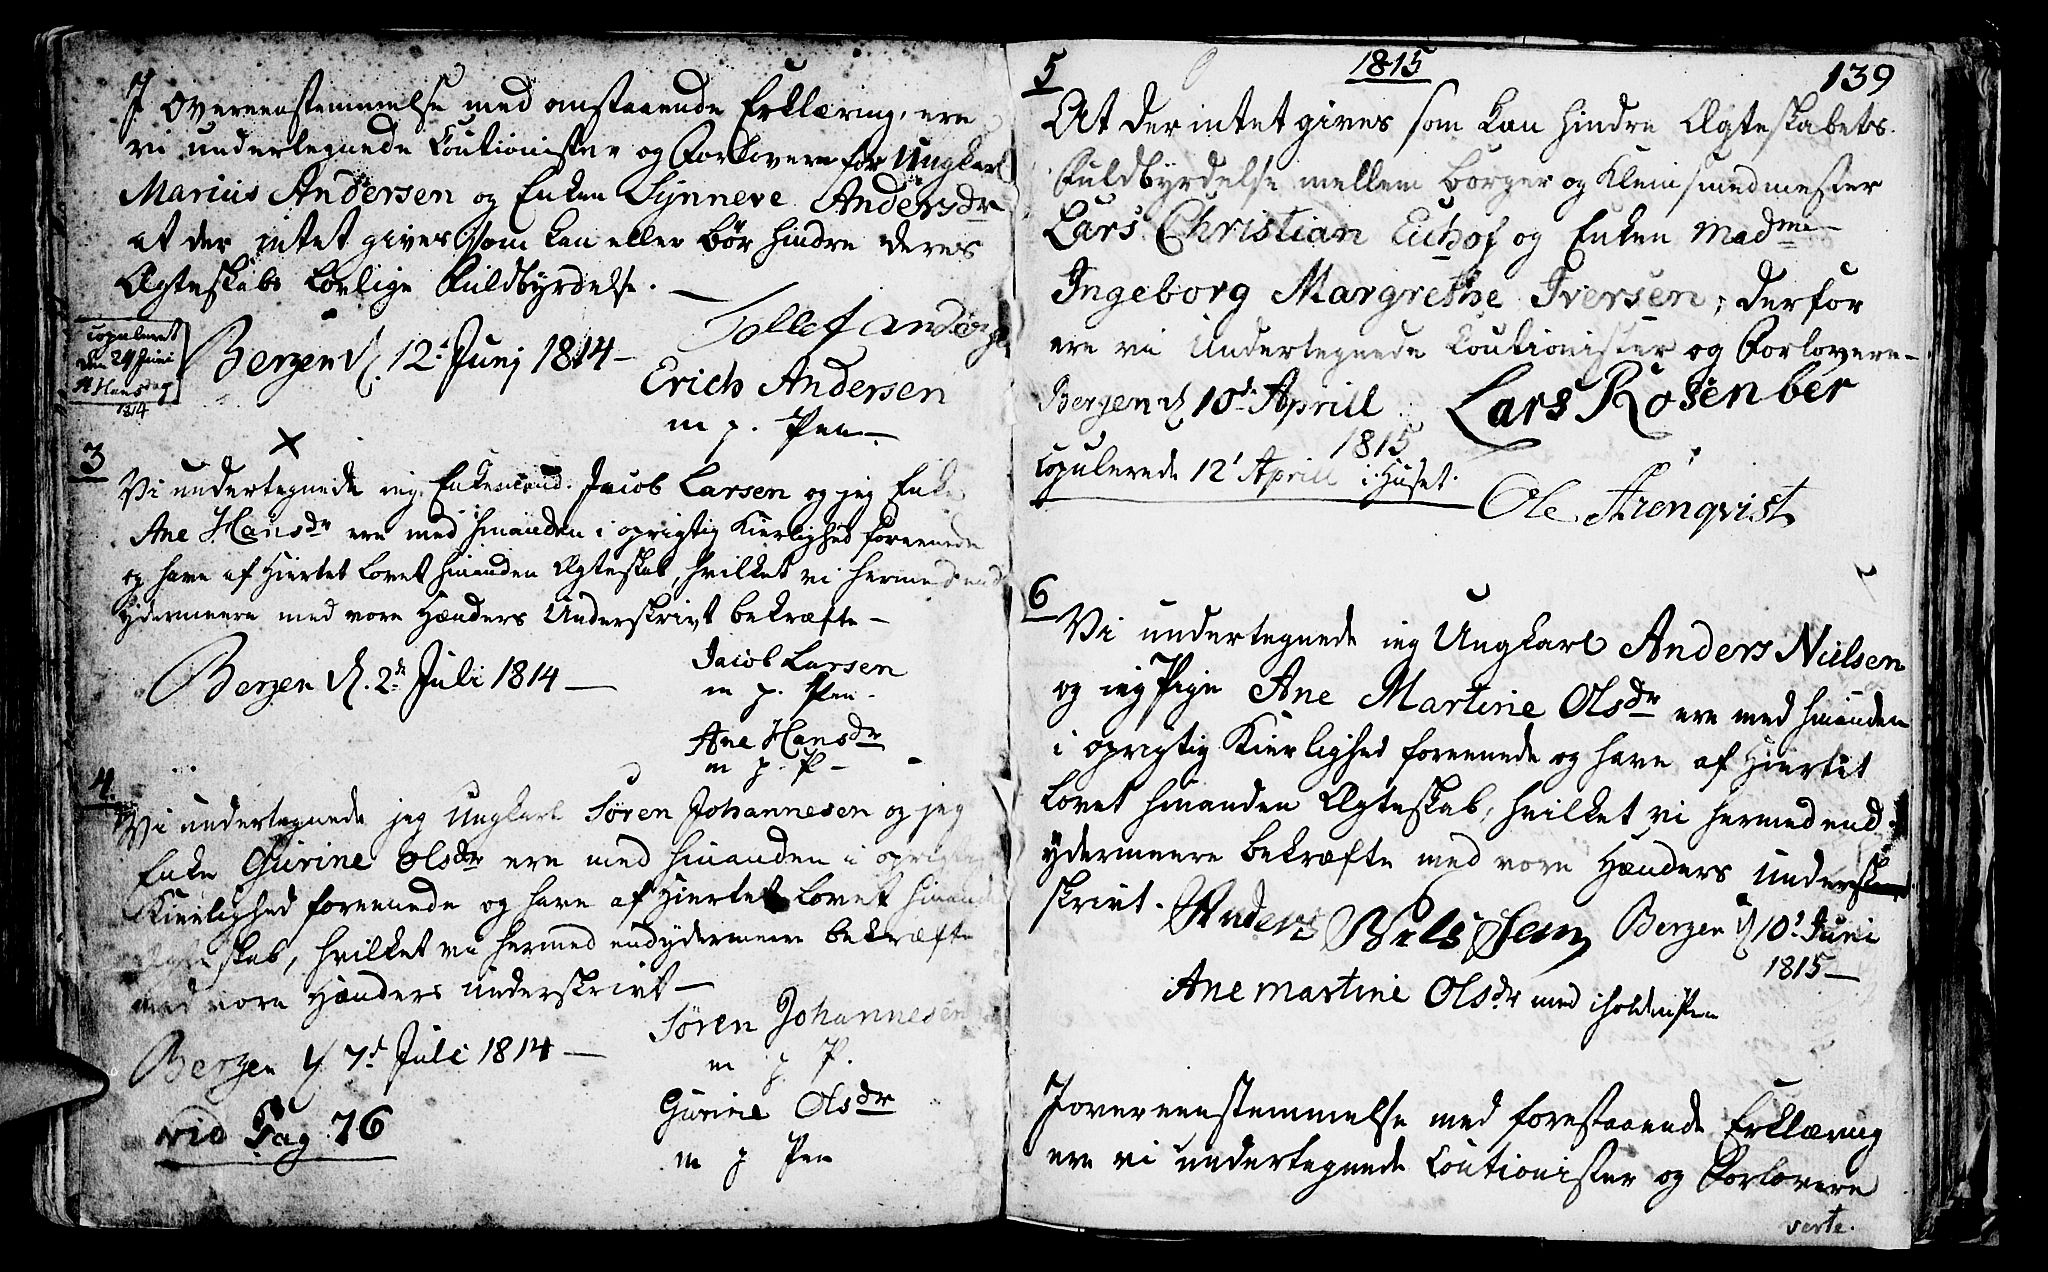 I overeenstemmelse med anstaaende Erklæring, ere
vi undertegnede Coutionister og Forlovere for Ungkarl
Marius Andersen og Enken Synneve Andersdr
at der intet gives som kan eller bør hindre deres
Ægteskabs Lovlige Fuldbyrdelse. —
Tollef
copuleret
den 24 Juni
St Hansdag
1814
Bergen d. 12t Junj 1814 —
Erich Andersen
m. p. Pen —
3
Vi undertegnede ieg Enkemand Jacob Larsen og jeg Enke
Ane Hansdr ere med hinanden i oprigtig Kierlighed foreenede
og have af Hiertet lovet hinanden Ægteskab, hvilket vi hermed end
ydermeere med vore Hænders Underskrivt bekræfte —
Bergen d. 2de Juli 1814 —
Jacob Larsen
m. p. Pen.
Ane Hansdr
m p. P —
4
Vi undertegnede jeg Ungkarl Søren Johannesen og jeg
Enke Gurine Olsdr ere med hinanden i oprigtig
Kierlighed foreenede og have af Hiertet Lovet hinanden
Ægteskab, hvilket vi hermed endydermeere bekræfte
med vore Hænders underskrivt —
Bergen d 7d Juli 1814 —
Søren Johannesen
m p P.
Gurine Olsdr
m p Pen
vid Pag. 76
5
1815
139
At der intet gives som kan hindre Ægteskabets
Fuldbyrdelse mellem Borger og Kleinsmedmester
Lars Christian Eichof og Enken Madme
Ingeborg Margrethe Iversen; derfor
ere vi Undertegnede Coutionister og Forlovere —
Bergen d 10de Aprill
1815
Lars Rosenber
copulerede 12t Aprill i Huset.
Ole
6
Vi undertegnede ieg Ungkarl Anders Nielsen
og ieg Pige Ane Martine Olsdr ere med hinanden
i oprigtig Kierlighed foreenede og have af Hiertet
Lovet hinanden Ægteskab, hvilket vi hermed end
ydermeere bekræfte med vore Hænders under
skrivt.
Anders Nils Sen
Bergen d 10t Juni
1815 —
Ane martine Olsdr med iholden Pen
I overeenstemmelse med forestaaende Erklæring
ere vi undertegnede Coutionister og Forlovere
verte.